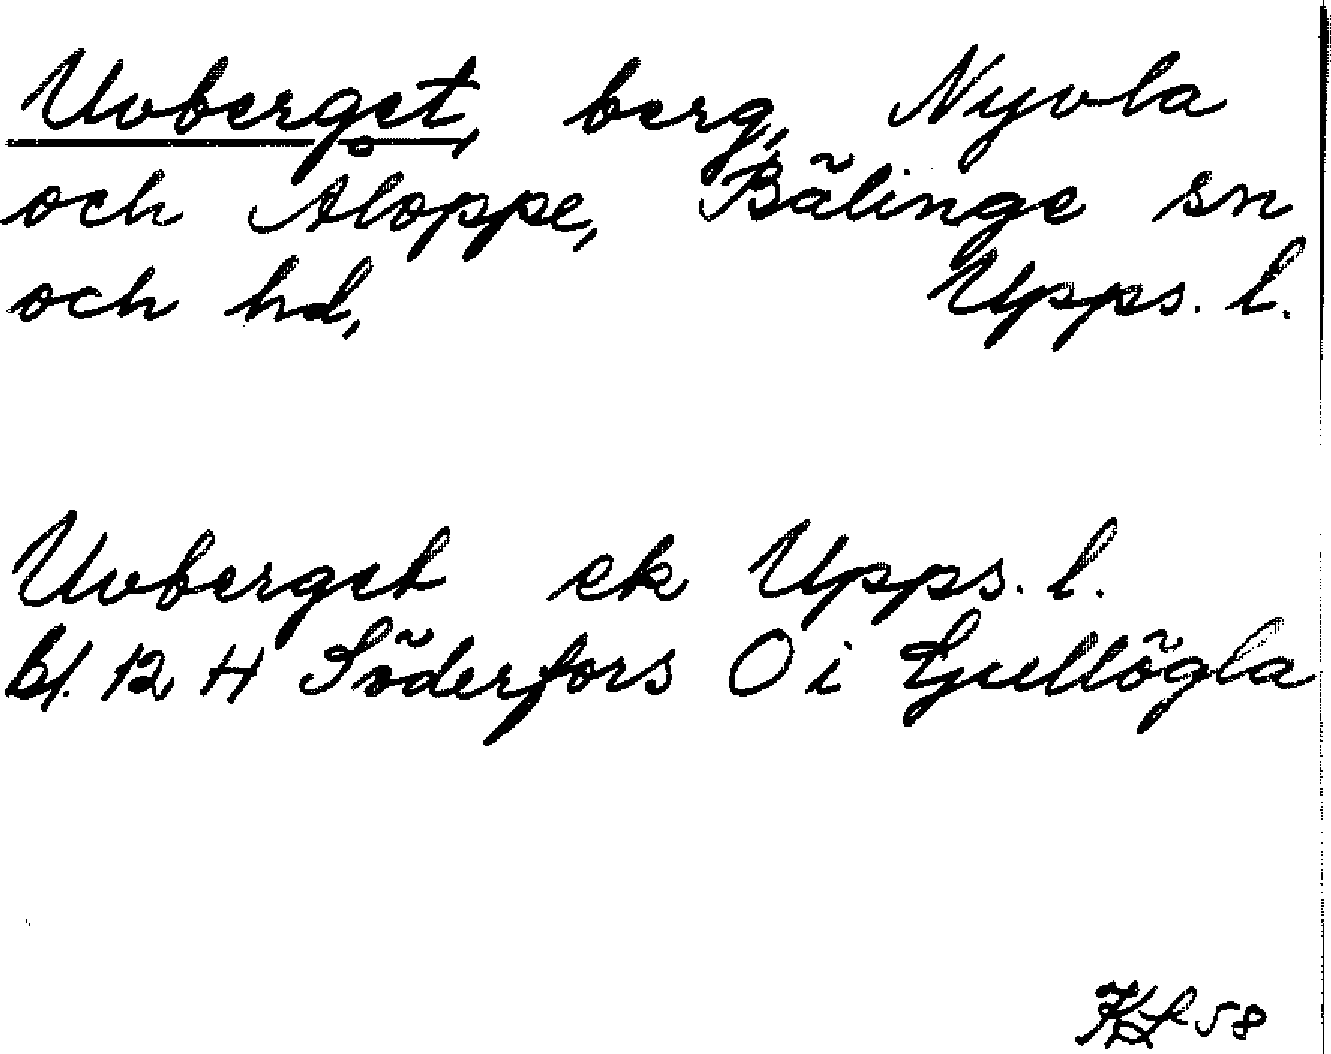 Uvberget, berg, Nyvla
och Åloppe, Bälinge sn
och hd, Upps. l.
Uvberget ek Upps. l.
Bl. 12 H Söderfors O i Gullögla
KL 58